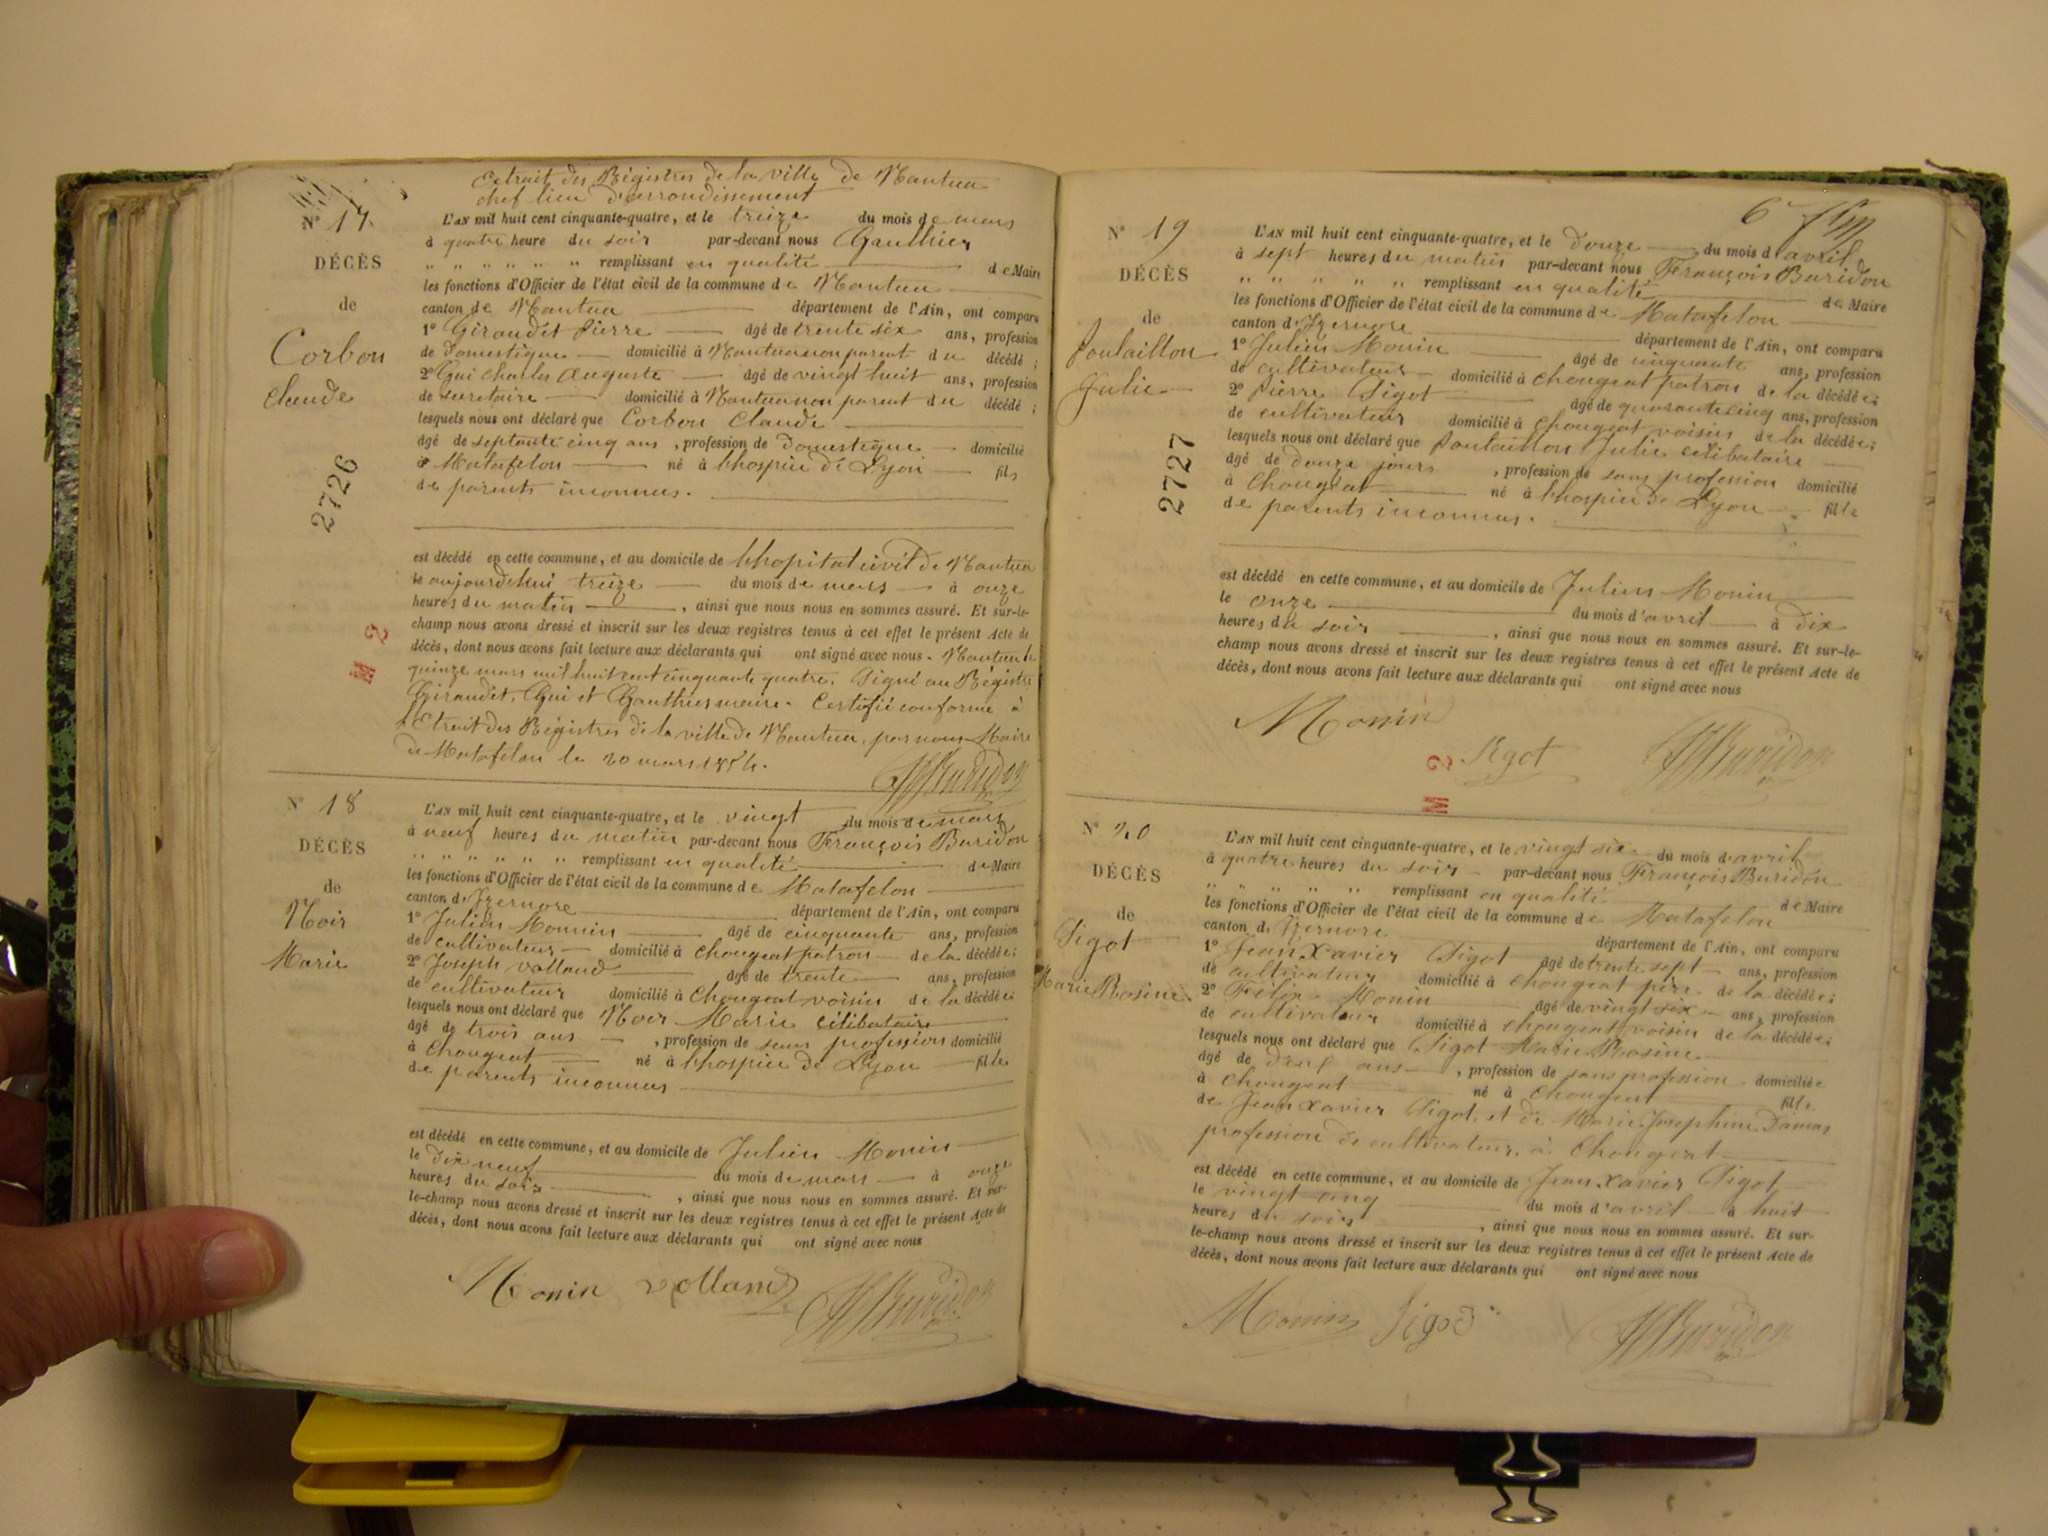 Extrait des Régistres de la ville de Nantua
chef lieu d'arrondissement
N° 17.
DÉCÈS
de
Corbon
Claude
2726
M 2
L'AN mil huit cent cinquante-quatre, et le treize du mois de mars
à quatre heure du soir par-devant nous Gauthier
" " " " " " remplissant en qualité de Maire
les fonctions d'Officier de l'état civil de la commune de Nantua
canton de Nantua département de l'Ain, ont comparu
1° Giraudet Pierre âgé de trente six ans, profession
de domestique domicilié à Nantua non parent du décédé ;
2° Gui Charles Auguste âgé de vingt huit ans, profession
de secretaire domicilié à Nantua non parent du décédé ;
lesquels nous ont déclaré que Corbon Claude
âgé de septante cinq ans , profession de domestique domicilié
à Matafelon né à l'hospice de Lyon fils
de parents inconnus.
est décédé en cette commune, et au domicile de l'hopital civil de Nantua
le aujourdehui treize du mois de mars à onze
heures du matin , ainsi que nous nous en sommes assuré. Et sur-le-
champ nous avons dressé et inscrit sur les deux registres tenus à cet effet le présent Acte de
décès, dont nous avons fait lecture aux déclarants qui ont signé avec nous. Nantua le
quinze mars mil huit cent cinquante quatre. Signé au Régistre
Giraudet, Gui et Gauthier maire. Certifié conforme à
l'Etrait des Régistres de la ville de Nantua, par nous Maire
de Matafelon le 20 mars 1854.
Buridon
N° 18
DÉCÈS
de
Noir
Marie
L'AN mil huit cent cinquante-quatre, et le vingt du mois de mars
à neuf heures du matin par-devant nous François Buridon
" " " " " " remplissant en qualité de Maire
les fonctions d'Officier de l'état civil de la commune de Matafelon
canton d'Izernore département de l'Ain, ont comparu
1° Julien Monnin âgé de cinquante ans, profession
de cultivateur domicilié à Chougeat patron de la décédée;
2° Joseph volland âgé de trente ans, profession
de cultivateur domicilié à Chougeat voisin de la décédée;
lesquels nous ont déclaré que Noir Marie célibataire
âgé de trois ans , profession de sans profession domicilié
à Chougeat né à l'hospice de Lyon fille
de parents inconnus
est décédé en cette commune, et au domicile de Julien Monin
le dix neuf du mois de mars à onze
heures du soir , ainsi que nous nous en sommes assuré. Et sur-
le-champ nous avons dressé et inscrit sur les deux registres tenus à cet effet le présent Acte de
décès, dont nous avons fait lecture aux déclarants qui ont signé avec nous
Monin volland Buridon
6e
N° 19
DÉCÈS
de
Poulaillon
Julie
2727
M 2
L'AN mil huit cent cinquante-quatre, et le douze du mois d'avril
à sept heures du matin par-devant nous François Buridon
" " " " " remplissant en qualité de Maire
les fonctions d'Officier de l'état civil de la commune de Matafelon
canton d'Izernore département de l'Ain, ont comparu
1° Julien Monin âgé de cinquante ans, profession
de cultivateur domicilié à Chougeat patron de la décédée;
2° Pierre Sigot âgé de quarante cinq ans, profession
de cultivateur domicilié à Chougeat voisin de la décédée;
lesquels nous ont déclaré que Poulaillon Julie célibataire
âgé de douze jours , profession de sans profession domicilié
à Chougeat né à l'hospice de Lyon fille
de parents inconnus.
est décédé en cette commune, et au domicile de Julien Monin
le onze du mois d'avril à dix
heures du soir , ainsi que nous nous en sommes assuré. Et sur-le-
champ nous avons dressé et inscrit sur les deux registres tenus à cet effet le présent Acte de
décès, dont nous avons fait lecture aux déclarants qui ont signé avec nous
Monin
Sigot Buridon
N° 20
DÉCÈS
de
Sigot
Marie Rosine
L'AN mil huit cent cinquante-quatre, et le vingt six du mois d'avril
à quatre heures du soir par-devant nous François Buridon
" " " " " remplissant en qualité de Maire
les fonctions d'Officier de l'état civil de la commune de Matafelon
canton d'Izernore département de l'Ain, ont comparu
1° Jean Xavier Sigot âgé de trente sept ans, profession
de cultivateur domicilié à Chougeat père de la décédée;
2° Félix Monin âgé de vingt six ans, profession
de cultivateur domicilié à Chougeat voisin de la décédée;
lesquels nous ont déclaré que Sigot Marie Rosine
âgé de deux ans , profession de sans profession domiciliée
à Chougeat né à Chougeat fille
de Jean Xavier Sigot et de Marie Josephine Damas
profession de cultivateur, à Chougeat
est décédé en cette commune, et au domicile de Jean Xavier Sigot
le vingt cinq du mois d'avril à huit
heures du soir , ainsi que nous nous en sommes assuré. Et sur-
le-champ nous avons dressé et inscrit sur les deux registres tenus à cet effet le présent Acte de
décès, dont nous avons fait lecture aux déclarants qui ont signé avec nous
Monin Sigot Buridon